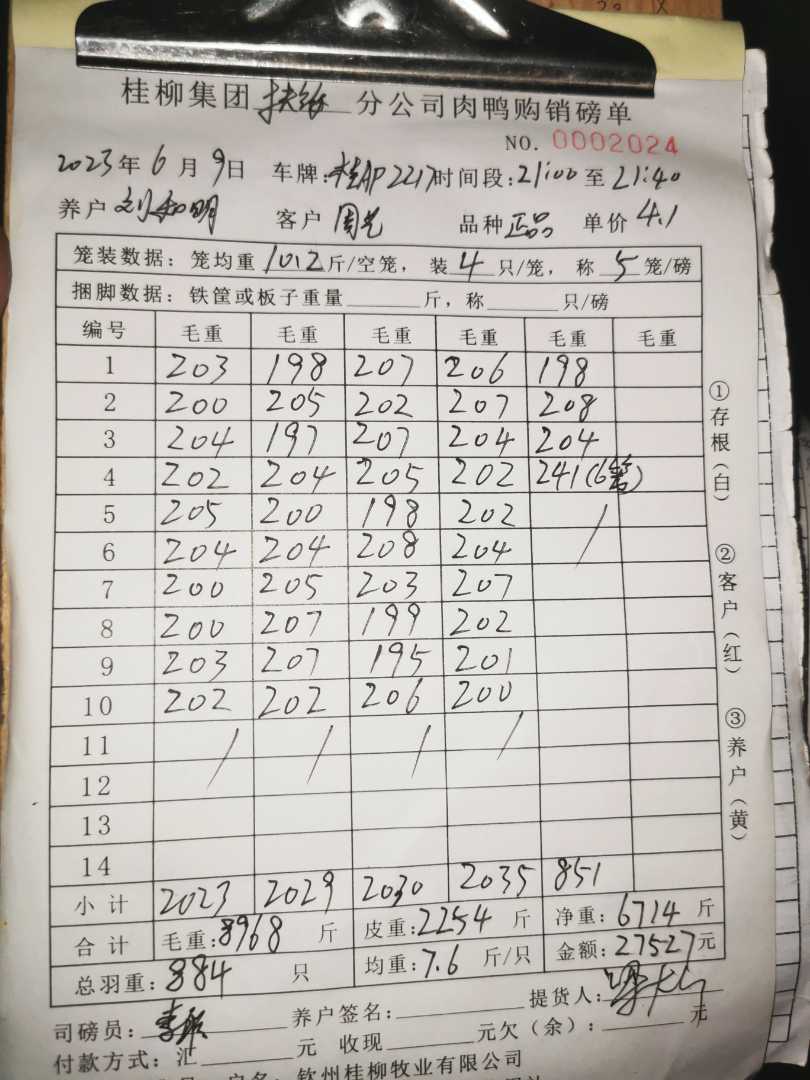 桂柳集团扶绥分公司肉鸭购销磅单
NO. 0002024
2023年6月9日 车牌:桂AP2217时间段:21:00至21:40
养户 刘和明 客户 周羌 品种 正品 单价 4.1
笼装数据: 笼均重 10.2 斤/空笼, 装 4 只/笼, 称 5 笼/磅
捆脚数据: 铁筐或板子重量______斤, 称______只/磅
编号 毛重 毛重 毛重 毛重 毛重 毛重
1 203 198 207 206 198
2 200 205 202 207 208
3 204 197 207 204 204
4 202 204 205 202 241(6笼)
5 205 200 198 202 /
6 204 204 208 204
7 200 205 203 207
8 200 207 199 202
9 203 207 195 201
10 202 202 206 200
11 / / / /
12
13
14
小计 2023 2029 2030 2035 851
合计 毛重:8968 斤 皮重:2254 斤 净重:6714斤
总羽重:884 只 均重:7.6 斤/只 金额:27527元
司磅员: 养户签名: 提货人:
付款方式: 汇______元 收现______元欠(余):______元
户名: 钦州桂柳牧业有限公司
①存根(白) ②客户(红) ③养户(黄)